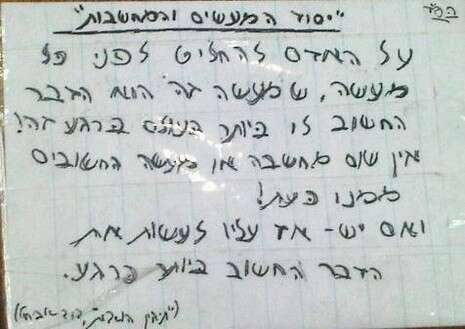 בס"ד
"יסוד המעשים והמחשבות"
על האדם להחליט לפני כל
מעשה, שמעשה זה הוא הדבר
החשוב לו ביותר בעולם ברגע זה!
אין שום מחשבה או מעשה החשובים
ממנו כעת!
ואם יש - אז עליו לעשות את
הדבר החשוב ביותר כרגע.